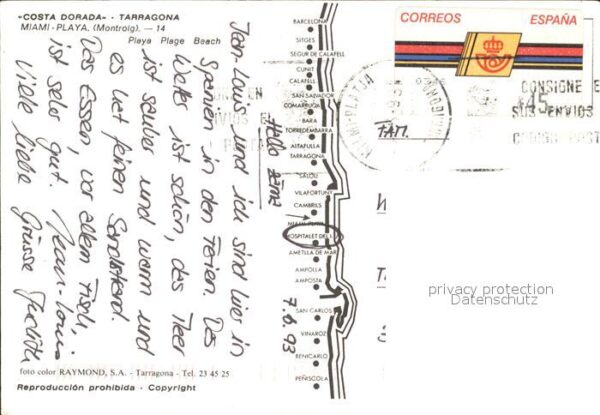 «COSTA DORADA» - TARRAGONA
MIAMI-PLAYA. (Montroig). — 14
Playa Plage Beach
Jean-Louis und ich sind hier in
Spanien in den Ferien. Das
Wetter ist schön, das Meer
ist sauber und warm und
es hat feinen Sandstrand.
Das Essen, vor allem Fisch,
ist sehr gut.
Liebe Grüsse Judith
Jean-Louis
Hallo
7.6.93
BARCELONA
SITGES
SEGUR DE CALAFELL
CUNIT
CALAFELL
SAN SALVADOR
COMARRUGA
BARA
TORREDEMBARRA
ALTAFULLA
TARRAGONA
SALOU
VILAFORTUNY
CAMBRILS
MIAMI PLAYA
HOSPITALET DEL I.
AMETLLA DE MAR
AMPOLLA
AMPOSTA
SAN CARLOS
VINAROZ
BENICARLO
PEÑISCOLA
CORREOS ESPAÑA
45
CONSIGNE E
SUS ENVIOS
CODIGO POST
privacy protection
Datenschutz
foto color RAYMOND, S.A. - Tarragona - Tel. 23 45 25
Reproducción prohibida - Copyright